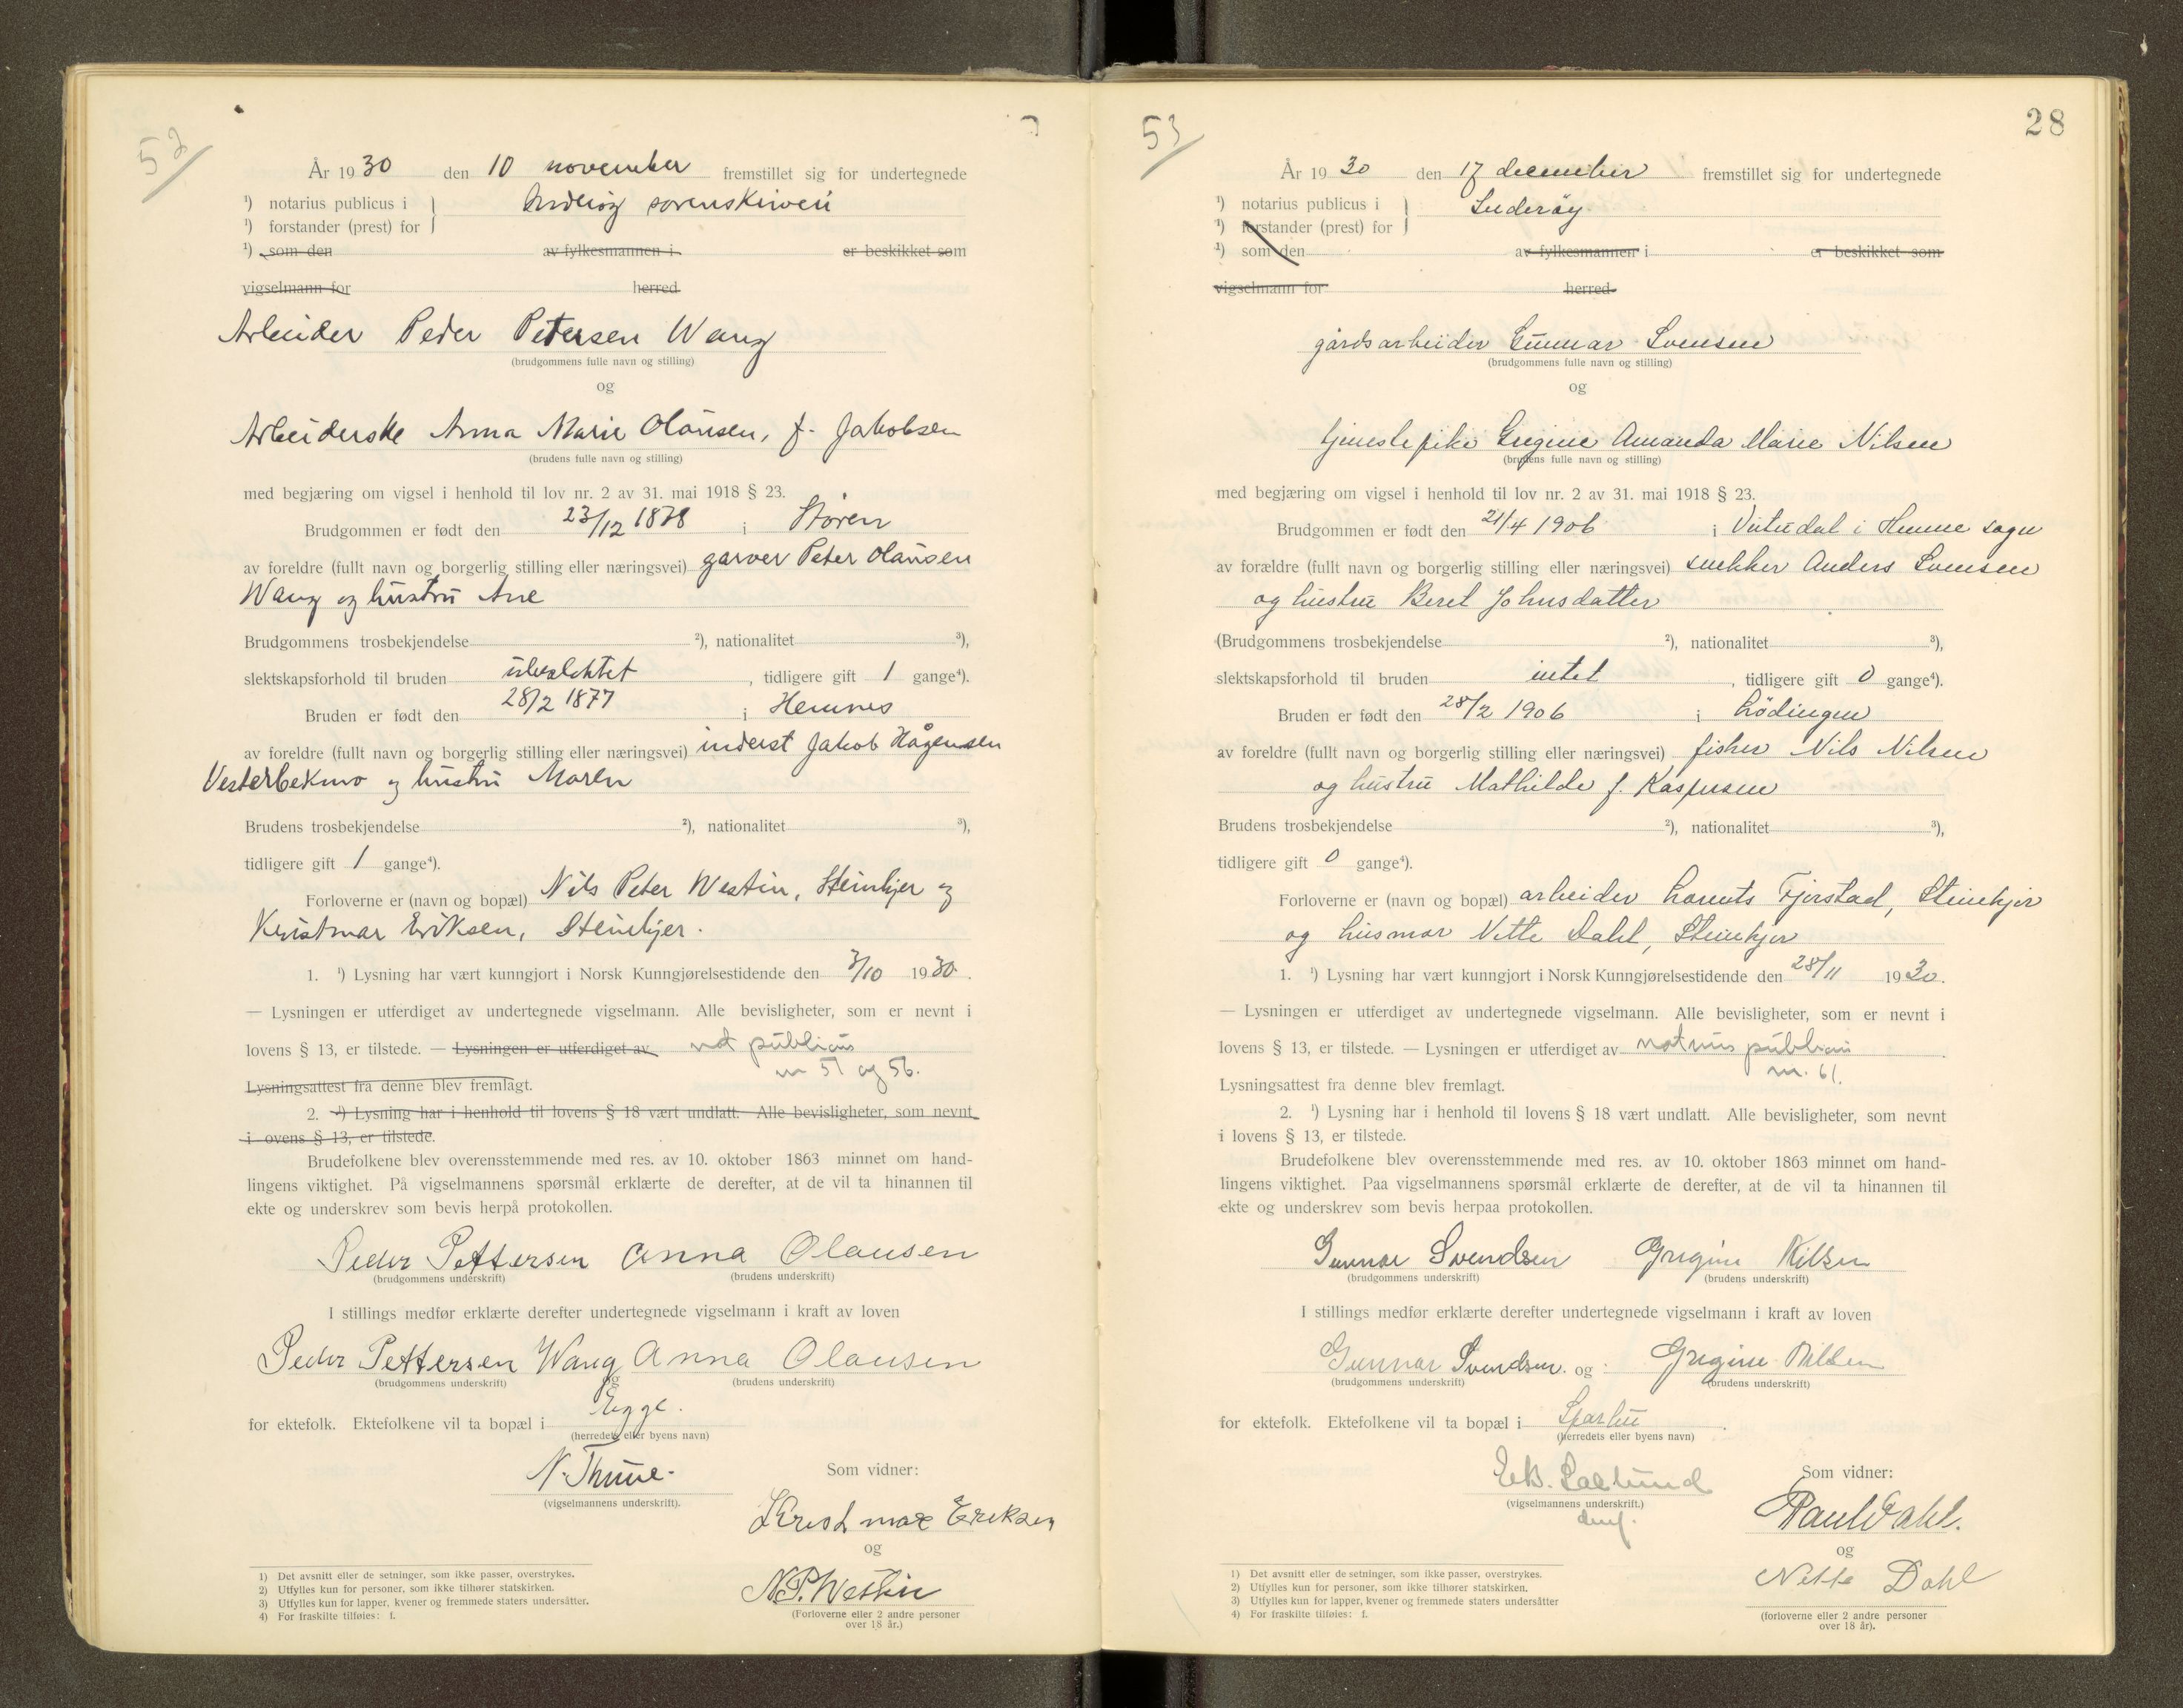 52
År 1930 den 10 november fremstillet sig for undertegnede
¹) notarius publicus i
Inderøy sorenskriveri
¹) forstander (prest) for
¹) som den av fylkesmannen i er beskikket som
vigselmann for herred
Arbeider Peder Petersen Wang
(brudgommens fulle navn og stilling)
og
Arbeiderske Anna Marie Olausen, f. Jakobsen
(brudens fulle navn og stilling)
med begjæring om vigsel i henhold til lov nr. 2 av 31. mai 1918 § 23.
Brudgommen er født den 23/12 1878 i Støren
av foreldre (fullt navn og borgerlig stilling eller næringsvei) garver Peter Olausen
Wang og hustru Ane
Brudgommens trosbekjendelse ²), nationalitet ³),
slektskapsforhold til bruden ubeslektet, tidligere gift 1 gange⁴).
Bruden er født den 28/2 1877 i Hemnes
av foreldre (fullt navn og borgerlig stilling eller næringsvei) inderst Jakob Hågensen
Vesterbekmo og hustru Maren
Brudens trosbekjendelse ²), nationalitet ³),
tidligere gift 1 gange⁴).
Forloverne er (navn og bopæl) Nils Peter Westin, Steinkjer og
Kristmar Eriksen, Steinkjer.
1. ¹) Lysning har vært kunngjort i Norsk Kunngjørelsestidende den 3/10 1930.
— Lysningen er utferdiget av undertegnede vigselmann. Alle bevisligheter, som er nevnt i
lovens § 13, er tilstede. — Lysningen er utferdiget av not publicus
nr 51 og 56.
Lysningsattest fra denne blev fremlagt.
2. ¹) Lysning har i henhold til lovens § 18 vært undlatt. Alle bevisligheter, som nevnt
i ovens § 13, er tilstede.
Brudefolkene blev overensstemmende med res. av 10. oktober 1863 minnet om hand-
lingens viktighet. På vigselmannens spørsmål erklærte de derefter, at de vil ta hinannen til
ekte og underskrev som bevis herpå protokollen.
Peder Pettersen Anna Olausen
(brudgommens underskrift) (brudens underskrift)
I stillings medfør erklærte derefter undertegnede vigselmann i kraft av loven
Peder Pettersen Wang Anna Olausen
(brudgommens underskrift) og (brudens underskrift)
for ektefolk. Ektefolkene vil ta bopæl i Egge.
(herredets eller byens navn)
N. Thune. Som vidner:
(vigselmannens underskrift).
Kristmar Eriksen
og
N.P. Westin
(Forloverne eller 2 andre personer
over 18 år.)
1) Det avsnitt eller de setninger, som ikke passer, overstrykes.
2) Utfylles kun for personer, som ikke tilhører statskirken.
3) Utfylles kun for lapper, kvener og fremmede staters undersåtter.
4) For fraskilte tilføies: f.
53
28
År 1930 den 17 december fremstillet sig for undertegnede
¹) notarius publicus i
Inderøy
¹) forstander (prest) for
¹) som den av fylkesmannen i er beskikket som
vigselmann for herred
gårdsarbeider Gunnar Svensen
(brudgommens fulle navn og stilling)
og
tjenestepike Gregine Amanda Marie Nilsen
(brudens fulle navn og stilling)
med begjæring om vigsel i henhold til lov nr. 2 av 31. mai 1918 § 23.
Brudgommen er født den 21/4 1906 i Vutudal i Hemne sogn
av forældre (fullt navn og borgerlig stilling eller næringsvei) snekker Anders Svensen
og hustru Beret Johnsdatter
(Brudgommens trosbekjendelse ²), nationalitet ³),
slektskapsforhold til bruden intet, tidligere gift 0 gange⁴).
Bruden er født den 28/2 1906 i Lödingen
av foreldre (fullt navn og borgerlig stilling eller næringsvei) fisker Nils Nilsen
og hustru Mathilde f. Kaspersen
Brudens trosbekjendelse ²), nationalitet ³),
tidligere gift 0 gange⁴).
Forloverne er (navn og bopæl) arbeider Lorents Fjerstad, Steinkjer
og husmor Nette Dahl, Steinkjer
1. ¹) Lysning har vært kunngjort i Norsk Kunngjørelsestidende den 28/11 1930.
— Lysningen er utferdiget av undertegnede vigselmann. Alle bevisligheter, som er nevnt i
lovens § 13, er tilstede. — Lysningen er utferdiget av notrius publicus
nr. 61.
Lysningsattest fra denne blev fremlagt.
2. ¹) Lysning har i henhold til lovens § 18 vært undlatt. Alle bevisligheter, som nevnt
i lovens § 13, er tilstede.
Brudefolkene blev overensstemmende med res. av 10. oktober 1863 minnet om hand-
lingens viktighet. Paa vigselmannens spørsmål erklærte de derefter, at de vil ta hinannen til
ekte og underskrev som bevis herpaa protokollen.
Gunnar Svendsen Gregine Nilsen
(brudgommens underskrift) (brudens underskrift)
I stillings medfør erklærte derefter undertegnede vigselmann i kraft av loven
Gunnar Svendsen. og Gregine Nilsen
(brudgommens underskrift) (brudens underskrift)
for ektefolk. Ektefolkene vil ta bopæl i Sparbu.
(herredets eller byens navn)
Som vidner:
(vigselmannens underskrift.)
Paul Dahl.
og
Nette Dahl
(forloverne eller 2 andre personer
over 18 år).
1) Det avsnitt eller de setninger, som ikke passer, overstrykes.
2) Utfylles kun for personer, som ikke tilhører statskirken.
3) Utfylles kun for lapper, kvener og fremmede staters undersåtter
4) For fraskilte tilføies: f.